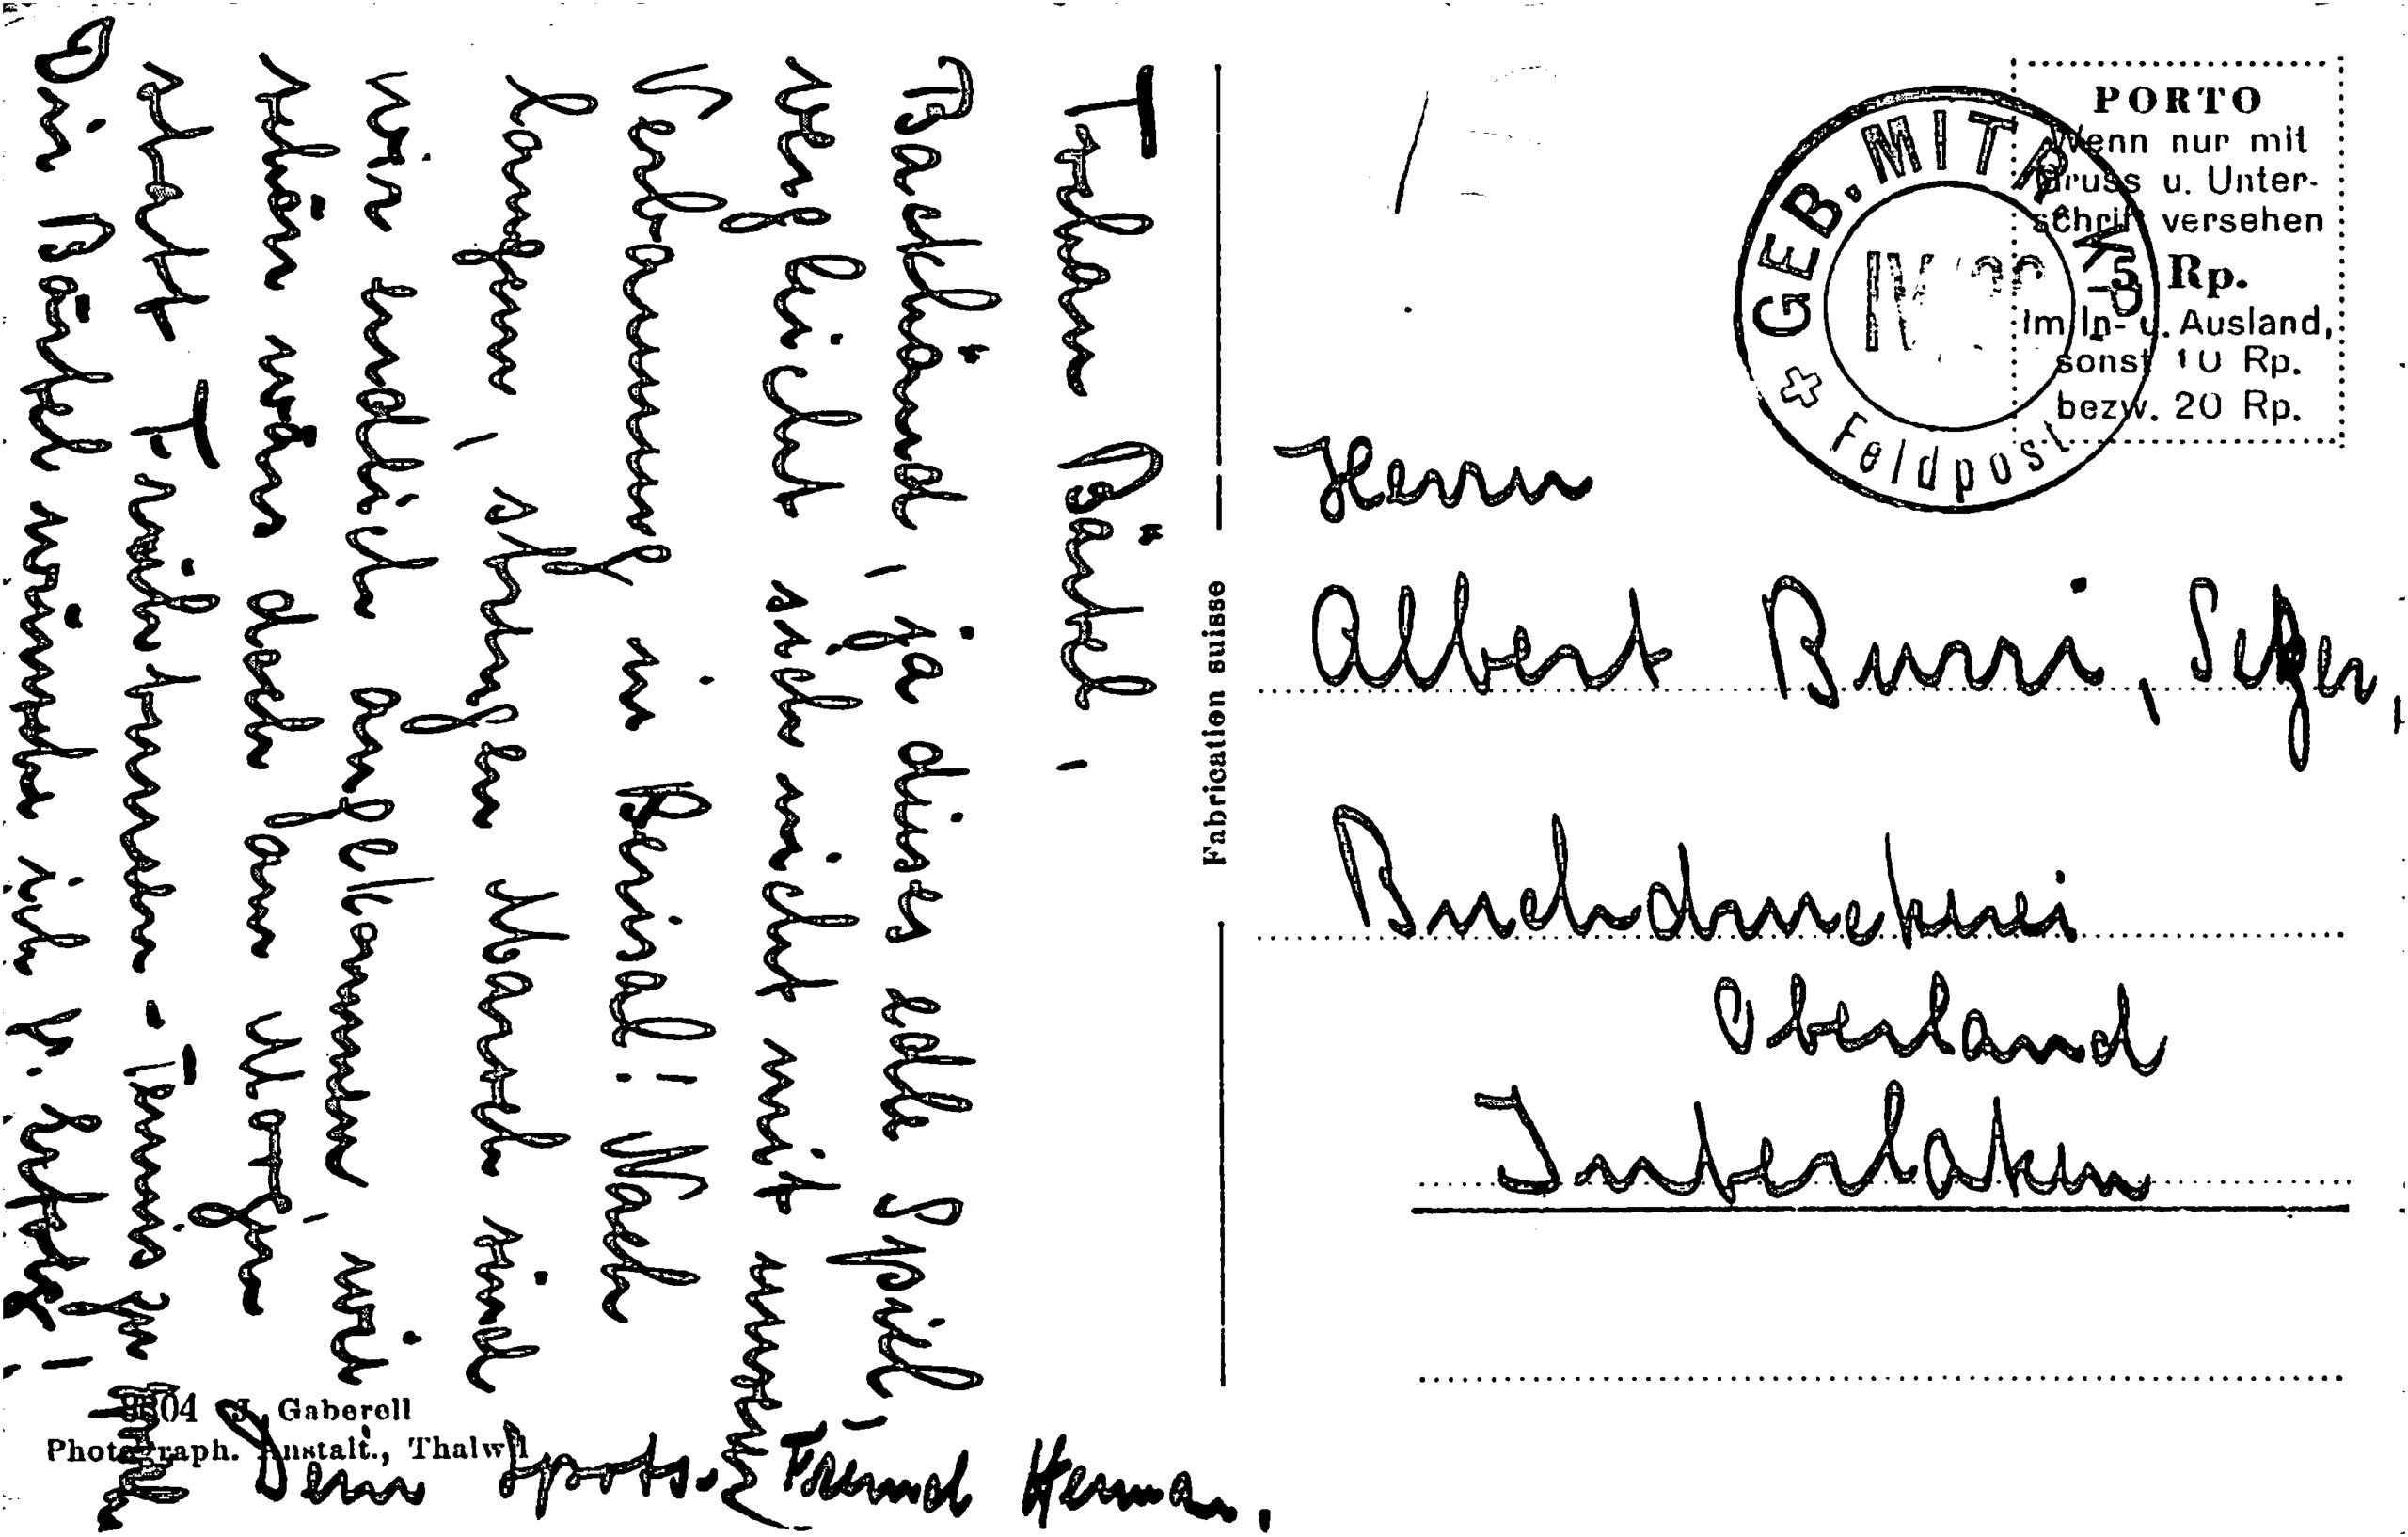 Tschau Bärtel,
Backhänd, ja dises edle Spiel
sich nicht mit
Verbannung in! Nach
langem, Marsch sind
wir endlich angekommen, wie
schön wär doch am Morgen
statt Frühturnen - Tennis zu
Dir Bärtel wünsche ich v. Erfolg!
Dein Sports-Freund Herman.
9304 J. Gaberell
Photograph. Anstalt., Thalwil
Fabrication suisse
PORTO
Wenn nur mit
Gruss u. Unter-
schrift versehen
5 Rp.
im In- u. Ausland,
sonst 10 Rp.
bezw. 20 Rp.
GEB. MITR.
Feldpost
Herrn
Albert Burri, Setzer,
Buchdruckerei
Oberland
Interlaken